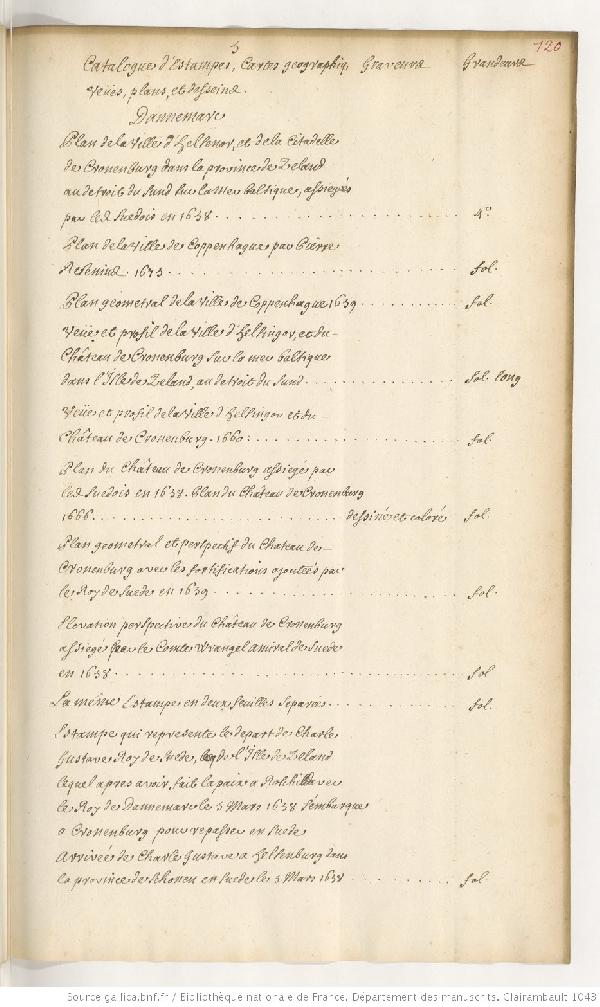 5
120
Catalogue d'Estampes, Cartes geographiq. Graveurs Grandeurs
Veües, plans, et desseins.
Dannemarc
Plan de la Ville d'Helsenor, et de la Citadelle
de Cronenburg dans la province de Zeland
au detroit du Sund sur la mer baltique, assiegés
par les Suedois en 1658 . . . . 4°
Plan de la Ville de Coppenhague par Pierre
1673 . . . . fol.
Plan geometral de la Ville de Coppenhague 1659 . . . . fol.
Veüe et profil de la Ville d'Helsingor, et du
Château de Cronenburg sur la mer baltique
dans l'Isle de Zeland, au detroit du Sund . . . . fol. long
Veüe et profil de la Ville d'Helsingor et du
Château de Cronenburg. 1660. . . . . fol.
Plan du Château de Cronenburg assiegé par
les Suedois en 1658. Plan du Château de Cronenburg
1666 . . . . dessiné et coloré fol.
Plan geometral et perspectif du Chateau de
Cronenburg avec les fortifications ajoutées par
le Roy de Suede en 1659 . . . . fol.
Elevation perspective du Château de Cronenburg
assiegé par le Comte Wrangel amiral de Suede
en 1658 . . . . fol
La même Estampe en deux feuilles separées . . . . fol.
Estampe qui represente le depart de Charle
Gustave Roy de Suede, de l'Isle de Zeland
lequel apres avoir fait la paix a Roskild avec
le Roy de Dannemarc le 3 Mars 1658 s'embarque
a Cronenburg pour repasser en Suede
Arrivée de Charle Gustave a Helsenburg dans
la province de Schonen en Suede le 5 Mars 1658 . . . . fol.
Source gallica.bnf.fr / Bibliothèque nationale de France. Département des manuscrits. Clairambault 1043